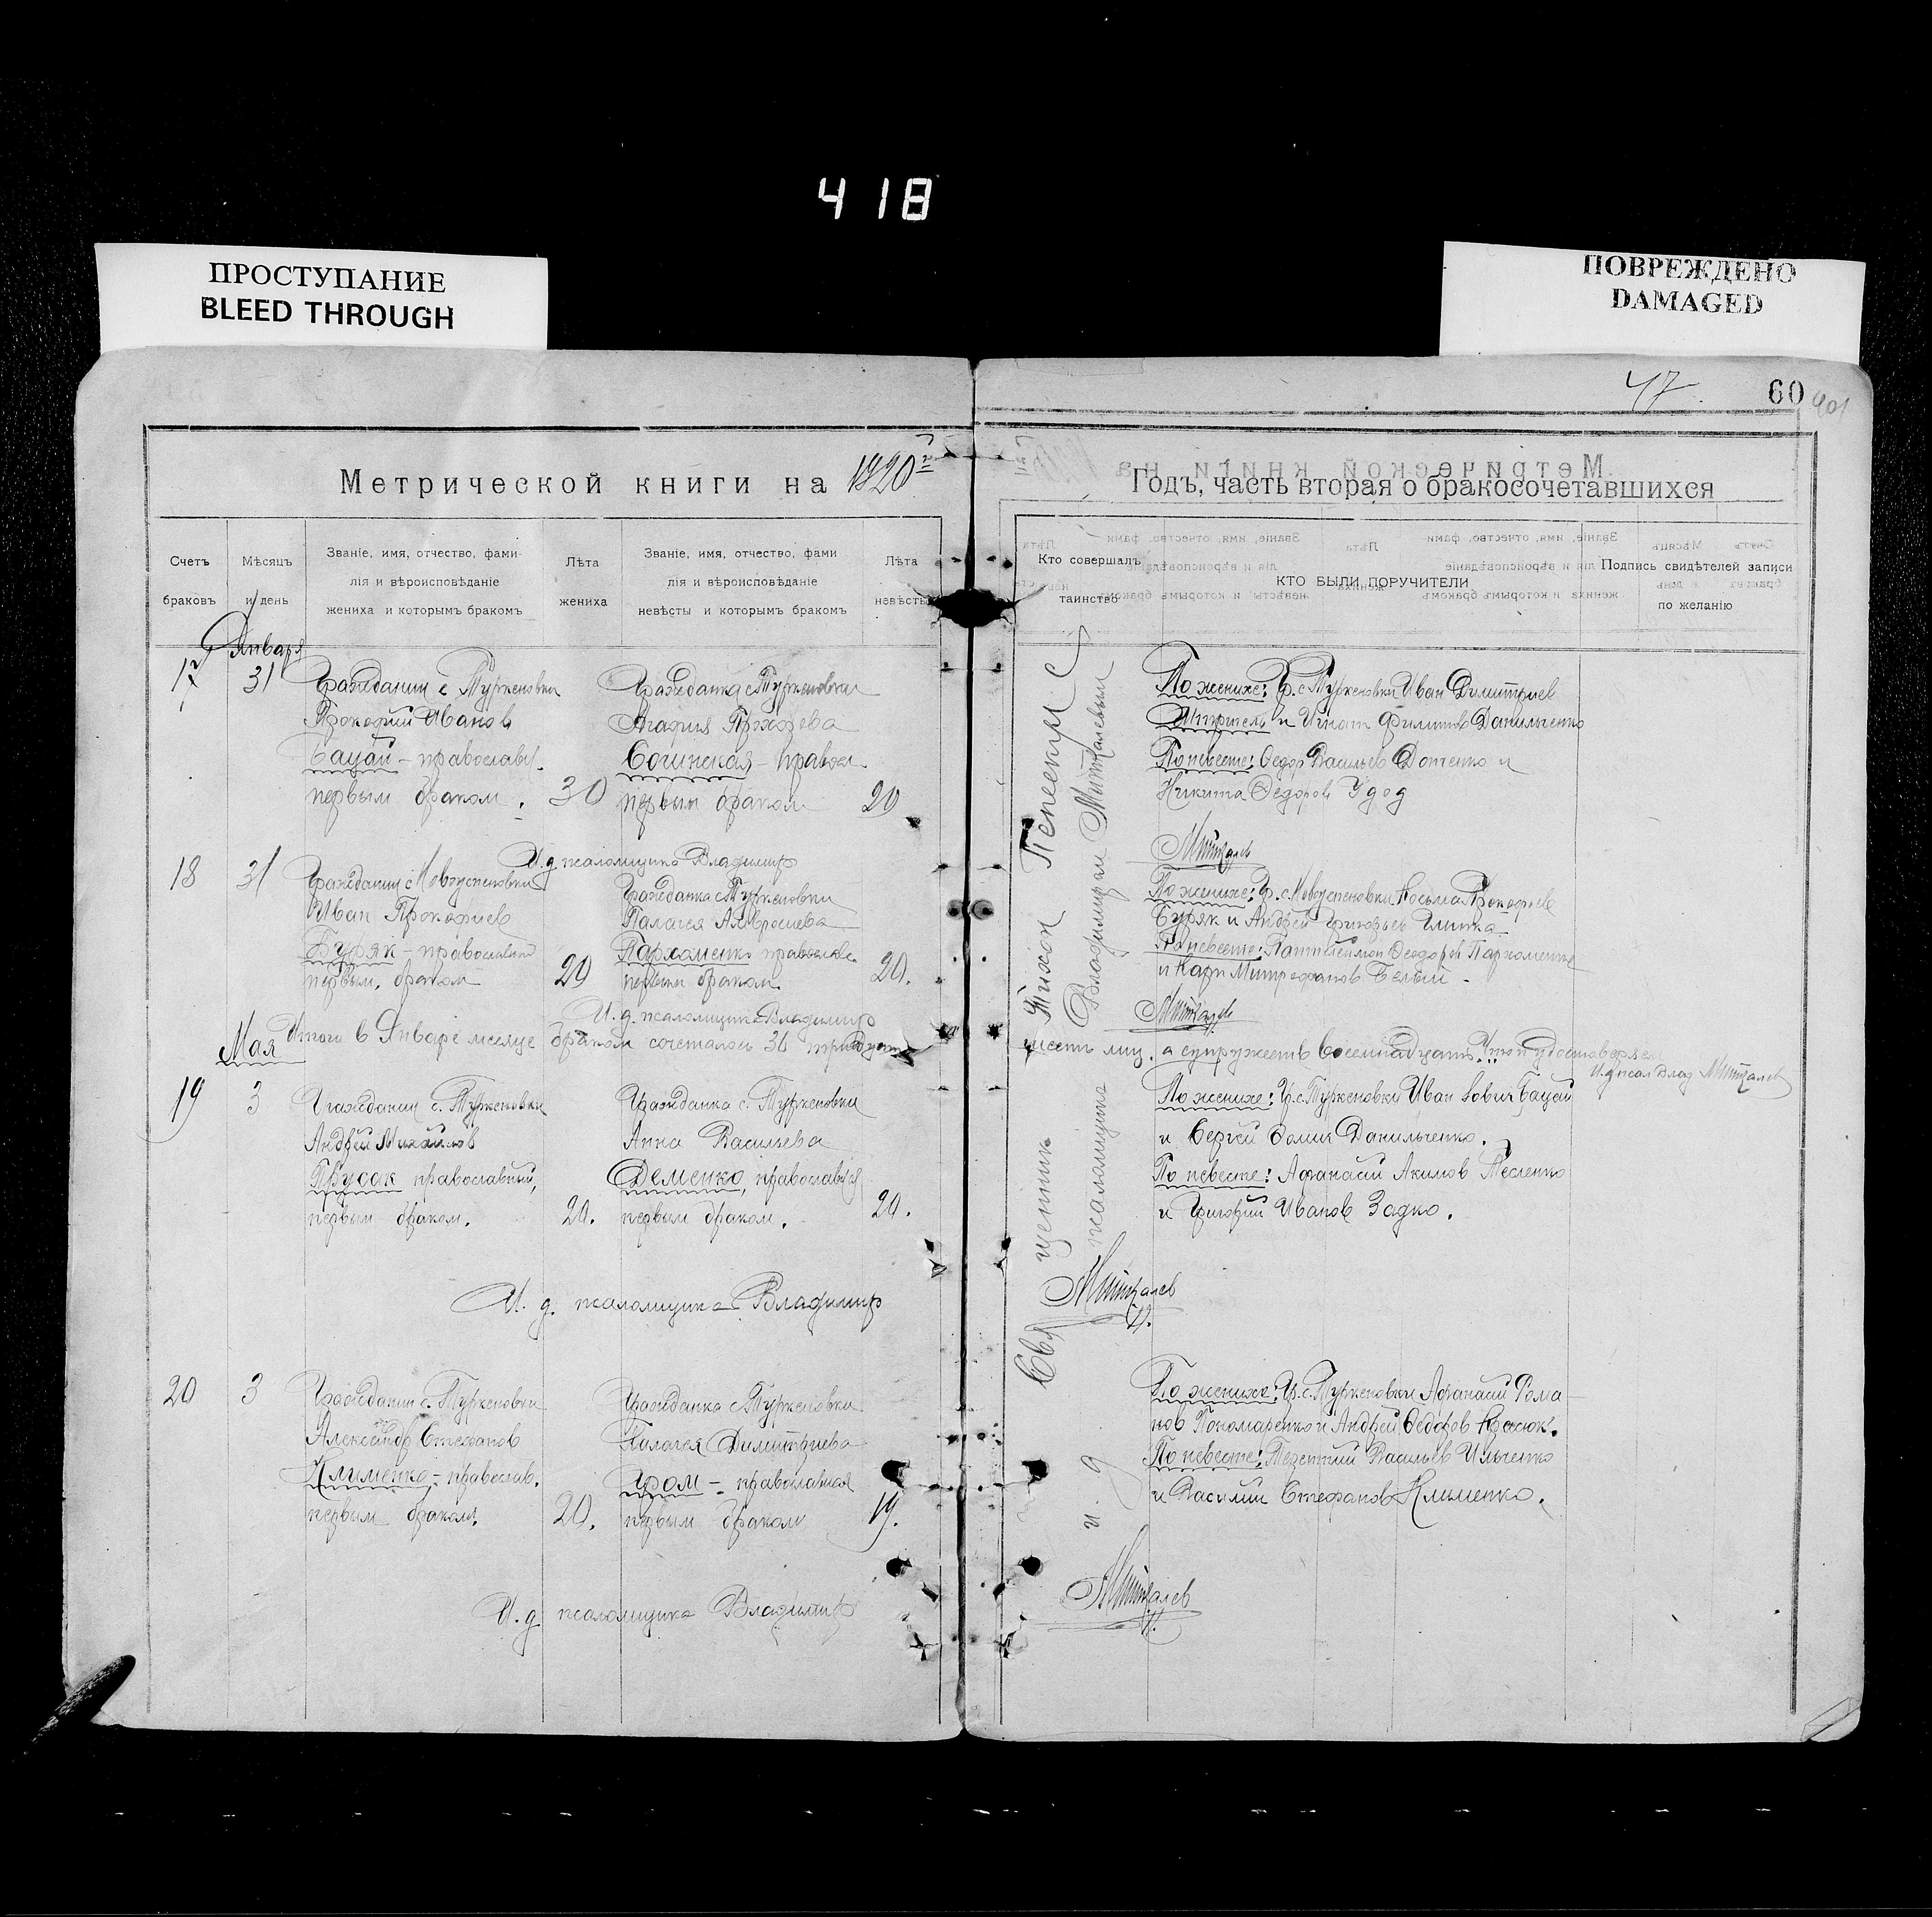 418
ПРОСТУПАНИЕ
BLEED THROUGH
ПОВРЕЖДЕНО
DAMAGED
47.
60
Метрической книги на 1920 г
Счетъ браковъ
Мѣсяцъ и день
Званіе, имя, отчество, фами-
лія и вѣроисповѣданіе
жениха и которымъ бракомъ
Лѣта жениха
Званіе, имя, отчество, фами
лія и вѣроисповѣданіе
невѣсты и которымъ бракомъ
Лѣта невѣсты
Января
17
31
Гражданин с Туркеновки
Прокофий Иванов
Бацай - православн.
первым браком.
30
Гражданка с Туркеновки
Агафия
Сочинская - правосл.
первым браком
20
И. д. псаломщика Владимир
18
31
Гражданин с Новоуспеновки
Иван Прокофиев
Буряк - православный
первым браком
20
Гражданка с Туркеновки
Палагея Амвросиева
Пархоменко православн.
первым браком.
20.
И. д. псаломщика Владимир
Итого в Январе месяце браком сочеталось 36 тридцать
Мая
19
3
Гражданин с. Туркеновки
Андрей Михайлов
Прусак православный,
первым браком.
20.
Гражданка с. Туркеновки
Анна Васильева
Деменко, православная
первым браком.
20.
И. д. псаломщика Владимир
20
3
Гражданин с. Туркеновки
Александр Стефанов
Клименко - православ.
первым браком.
20.
Гражданка с Туркеновки
Палагея Димитриева
Гром - православная
первым браком
19.
И. д. псаломщика Владимир
Годъ, часть вторая о бракосочетавшихся
Кто совершалъ таинство
КТО БЫЛИ ПОРУЧИТЕЛИ
Подпись свидѣтелей записи
по желанію
Священник Тихон
и. д. псаломщика Владимир
По женихе: Гр. с Туркеновки Иван Димитриев
и Игнат Филипов Данильченко
По невесте: Федор Васильев Доценко и
Никита Федоров Удод
По женихе: Гр. с. Новоуспеновки Косьма Прокофиев
Буряк и Андрей Григорьев Глинка
По невесте: Пантелеймон Феодоров Пархоменко
и Карп Митрофанов Белый.
шесть лиц. а супружеств восемнадцать. Что и удостоверяем
По женихе: Гр. с. Туркеновки Иван Бацай
и Сергей Фомин Данильченко.
По невесте: Афанасий Акимов Тесленко
и Григорий Иванов Задко.
По женихе: Гр. с. Туркеновки Афанасий Рома-
нов Пономаренко и Андрей Федоров
По невесте: Терентий Васильев Ильченко
и Василий Стефанов Клименко.